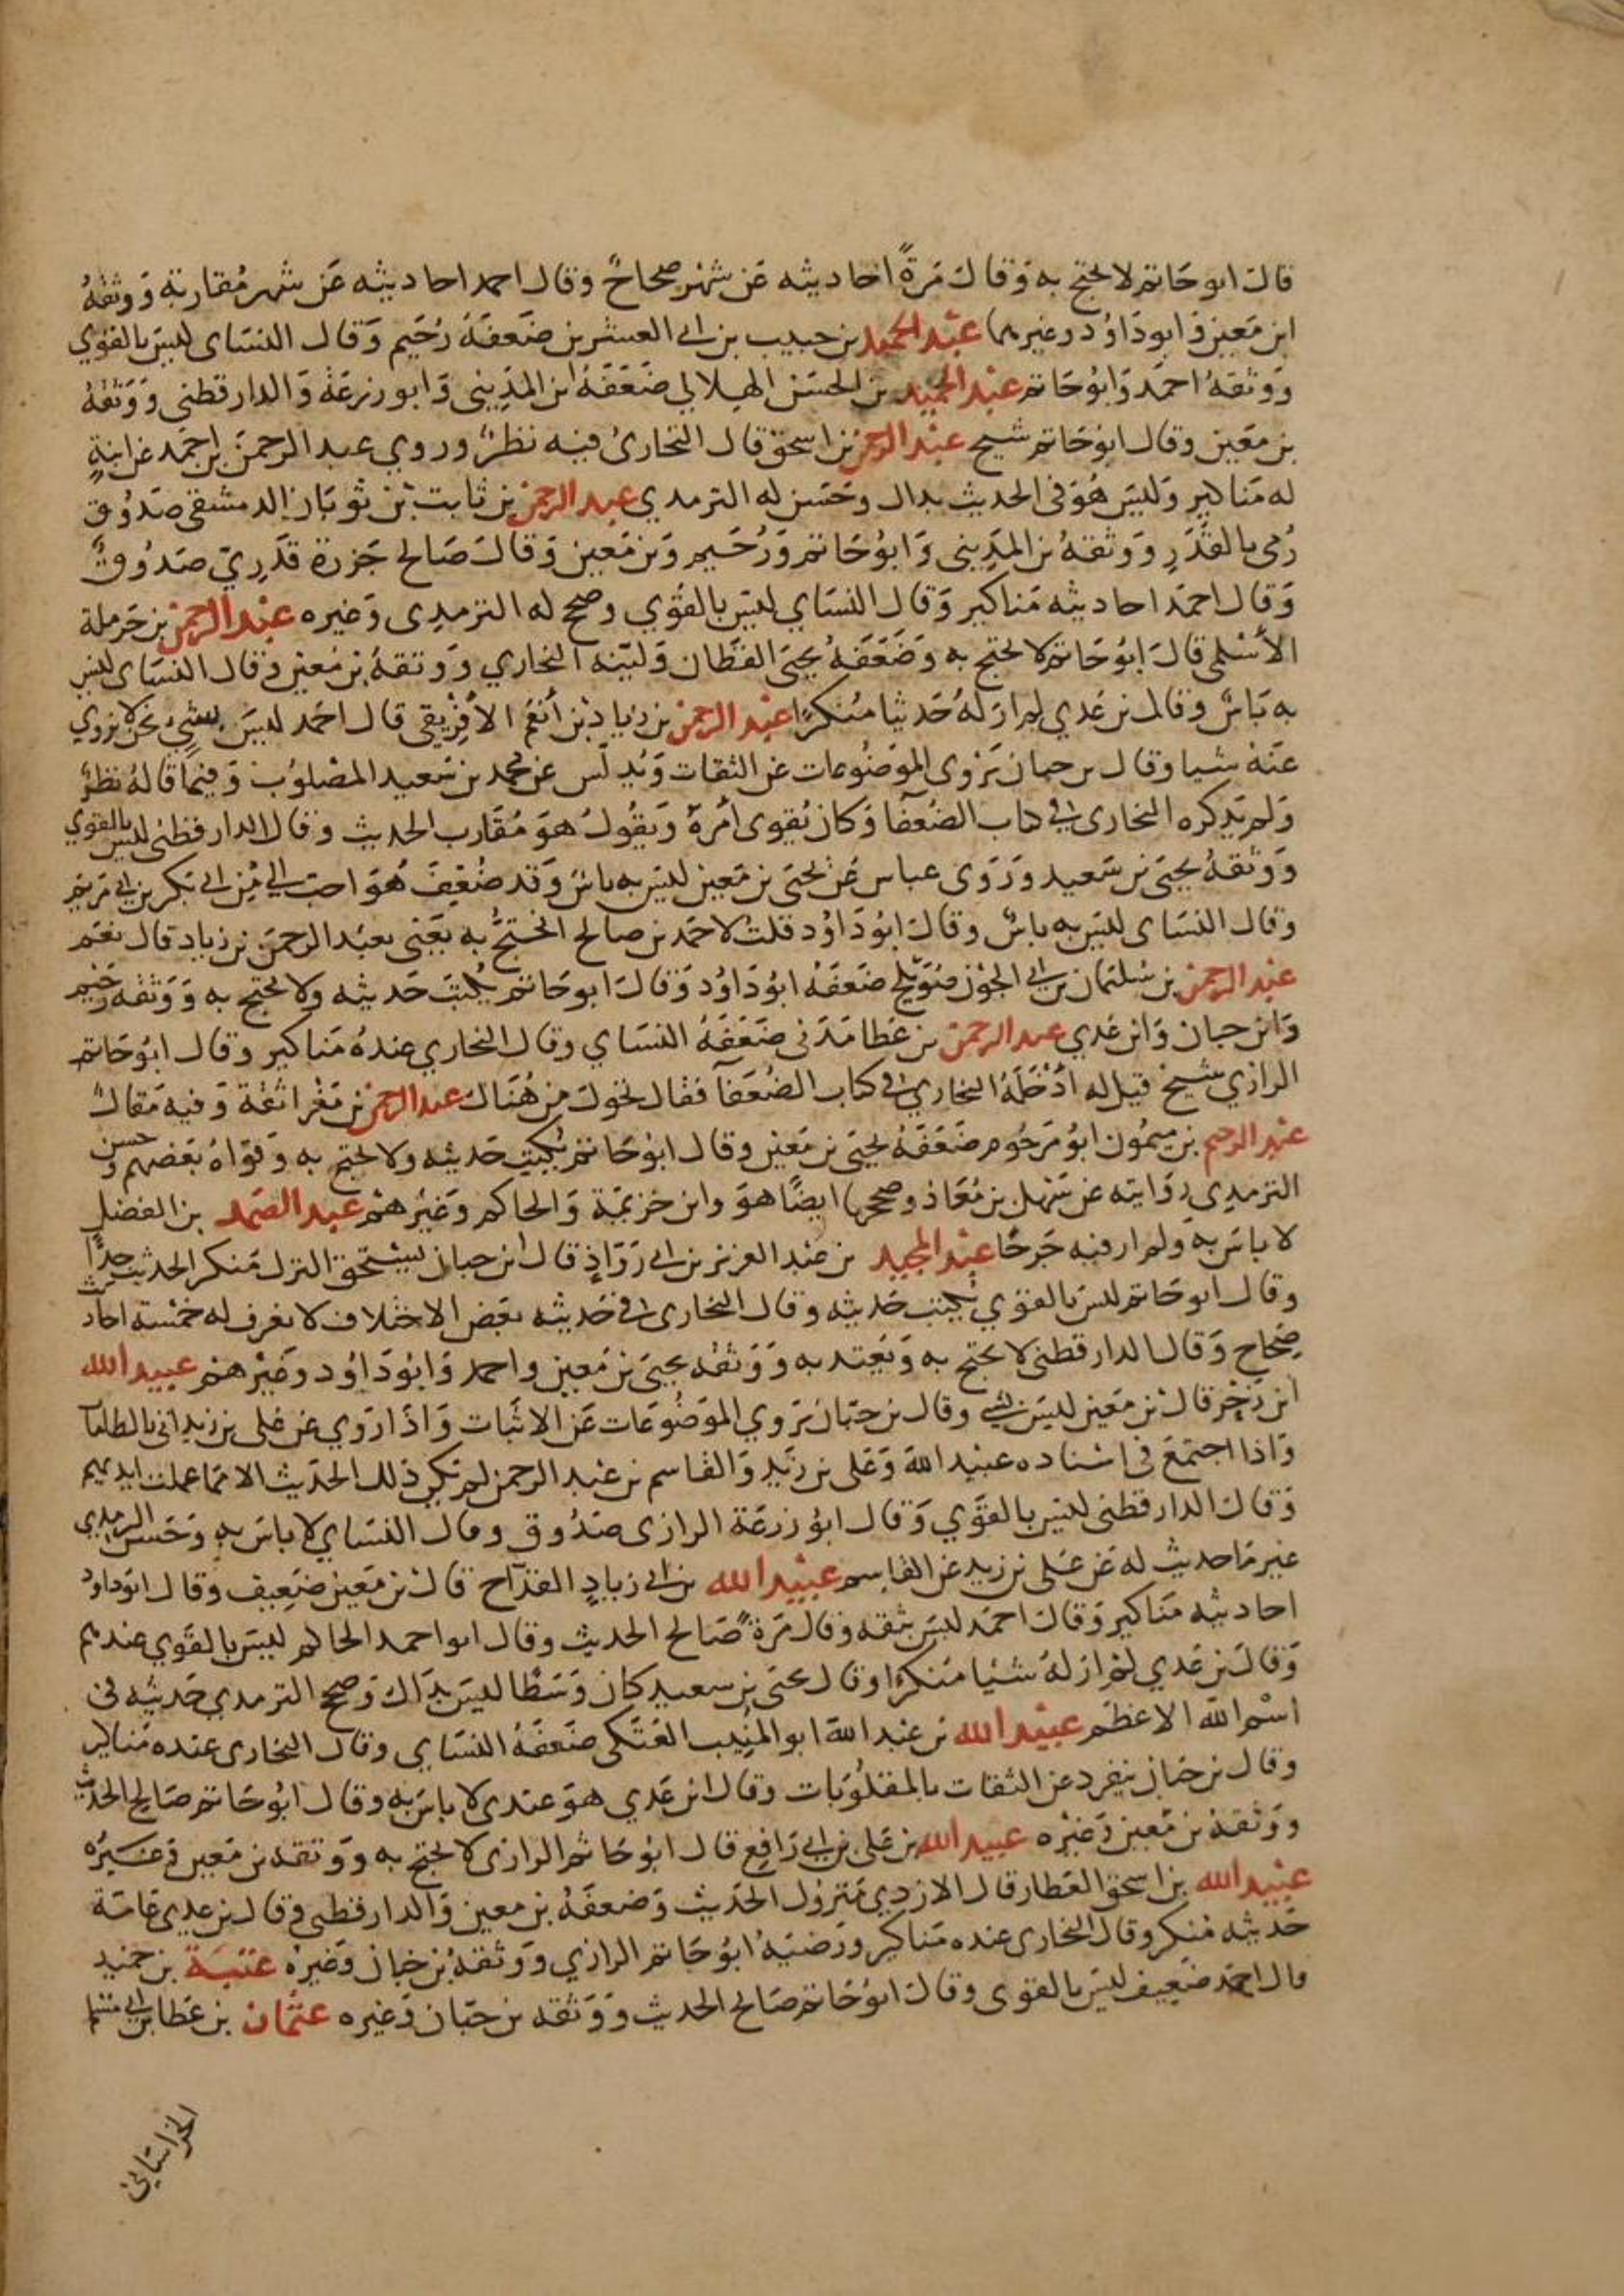 قال ابو حاتم لا يحتج به وقال مرة احاديثه عن شهر صحاح وقال احمد احاديثه عن شهر مقاربة ووثقه
ابن معين وابو داود وغيرهما عبد الحميد بن حبيب بن ابي العشرين ضعفه دحيم وقال النساى ليس بالقوي
ووثقه احمد وابو حاتم عبد الحميد بن الحسن الهلالي ضعفه ابن المديني وابو زرعة والدارقطنى ووثقه
بن معين وقال ابو حاتم شيخ عبد الرحمن بن اسحق قال البخارى فيه نظر وروي عبد الرحمن بن احمد عن ابيه
له مناكير وليس هو فى الحديث بذاك وحسن له الترمدي عبد الرحمن بن ثابت بن ثوبان الدمشقي صدوق
رمى بالقدر ووثقه بن المديني وابو حاتم ودحيم وبن معين وقال صالح جزرة قدري صدوق
وقال احمد احاديثه مناكير وقال النساي ليس بالقوي وصحح له الترمدى وغيره عبد الرحمن بن حرملة
الأسلمى قال ابو حاتم لا يحتج به وضعفه يحيى القطان ولينه البخاري ووثقه بن معين وقال النساى ليس
به باس وقال بن عدي لم ار له حديثا منكرا عبد الرحمن بن زياد بن أنعم الافريقي قال احمد ليس بشئ نحن لا نروي
عنه شيا وقال بن حبان يروى الموضوعات عن الثقات ويدلس عن محمد بن سعيد المصلوب وفيما قاله نظر
ولم يذكره البخارى فى كتاب الضعفا وكان يقوى امره ويقول هو مقارب الحديث وقال الدارقطنى ليس بالقوي
ووثقه يحيى بن سعيد وروى عباس عن يحيى بن معين ليس به باس وقد ضعف هو احب الي من ابي بكر بن ابي مريم
وقال النساى ليس به باس وقال ابو داود قلت لاحمد بن صالح اتحتج به يعنى بعبد الرحمن بن زياد قال نعم
عبد الرحمن بن سليمان بن ابي الجون ضعفه ابو داود وقال ابو حاتم يكتب حديثه ولا يحتج به ووثقه دحيم
وابن حبان وابن عدي عبد الرحمن بن عطا مدنى ضعفه النساي وقال البخاري عنده مناكير وقال ابو حاتم
الرازي شيخ قيل له ادخله البخاري فى كتاب الضعفآ فقال يحول من هناك عبد الرحمن بن مغرا ثقة وفيه مقال
عبد الرحيم بن ميمون ابو مرحوم ضعفه يحيى بن معين وقال ابو حاتم يكتب حديثه ولا يحتج به وقواه بعضهم وحسن
الترمدي روايته عن سهل بن معاذ وصححها ايضا هو وابن خزيمة والحاكم وغيرهم عبد الصمد بن الفضل
لا باس به ولم ار فيه جرحا عبد المجيد بن عبد العزيز بن ابي رواد قال ابن حبان يستحق الترك منكر الحديث جدا
وقال ابو حاتم ليس بالقوي يكتب حديثه وقال البخارى فى حديثه بعض الاختلاف لا يعرف له خمسة احاديث
صحاح وقال الدارقطنى لا يحتج به ويعتبر به ووثقه يحيى بن معين واحمد وابو داود وغيرهم عبيد الله
ابن زحر قال بن معين ليس بشي وقال بن حبان يروي الموضوعات عن الاثبات واذا روي عن على بن يزيد اتى بالطامآت
واذا اجتمع فى اسناده عبيد الله وعلى بن يزيد والقاسم بن عبد الرحمن لم يكن ذلك الحديث الا مما عملت ايديهم
وقال الدارقطنى ليس بالقوي وقال ابو زرعة الرازى صدوق وقال النساي لا باس به وحسن الترمدي
غير ما حديث له عن على بن يزيد عن القاسم عبيد الله بن ابي زياد القداح قال بن معين ضعيف وقال ابو داود
احاديثه مناكير وقال احمد ليس بثقه وقال مرة صالح الحديث وقال ابو احمد الحاكم ليس بالقوي عندهم
وقال بن عدي لم ار له شيا منكرا وقال يحيى بن سعيد كان وسطا ليس بذاك وصحح الترمدي حديثه فى
اسم الله الاعظم عبيد الله بن عبد الله ابو المنيب العتكى ضعفه النساي وقال البخارى عنده مناكير
وقال بن حبان ينفرد عن الثقات بالمقلوبات وقال ابن عدي هو عندى لا باس به وقال ابو حاتم صالح الحديث
ووثقه بن معين وغيره عبيد الله بن على بن ابي رافع قال ابو حاتم الرازى لا يحتج به ووثقه بن معين وغيره
عبيد الله بن اسحق العطار قال الازدي متروك الحديث وضعفه بن معين والدارقطنى وقال بن عدى عامة
حديثه منكر وقال البخارى عنده مناكير ورضيه ابو حاتم الرازي ووثقه بن حبان وغيره عتبة بن حميد
قال احمد ضعيف ليس بالقوى وقال ابو حاتم صالح الحديث ووثقه بن حبان وغيره عثمان بن عطا بن ابي مسلم
الخراساني